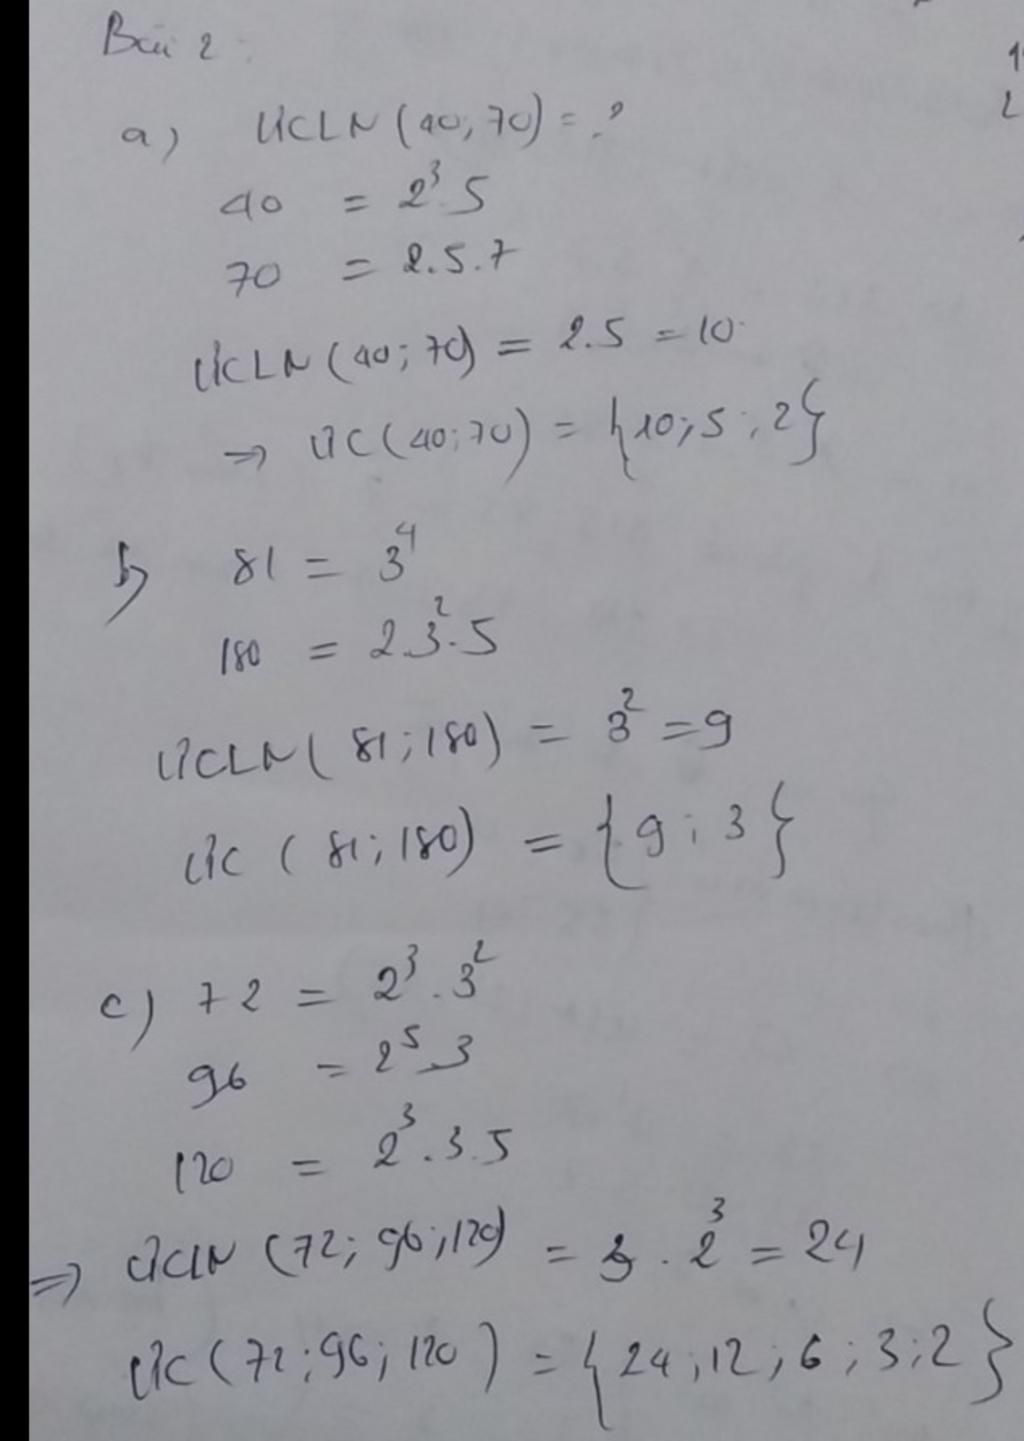 Bài 2:
a) ƯCLN (40, 70) = ?
40 = 2³.5
70 = 2.5.7
ƯCLN (40; 70) = 2.5 = 10
⇒ ƯC (40; 70) = {10; 5; 2}
b) 81 = 3⁴
180 = 2.3².5
ƯCLN ( 81; 180) = 3² = 9
ƯC ( 81; 180) = {9; 3}
c) 72 = 2³.3²
96 = 2⁵.3
120 = 2³.3.5
⇒ ƯCLN (72; 96; 120) = 3.2³ = 24
ƯC (72; 96; 120) = {24; 12; 6; 3; 2}